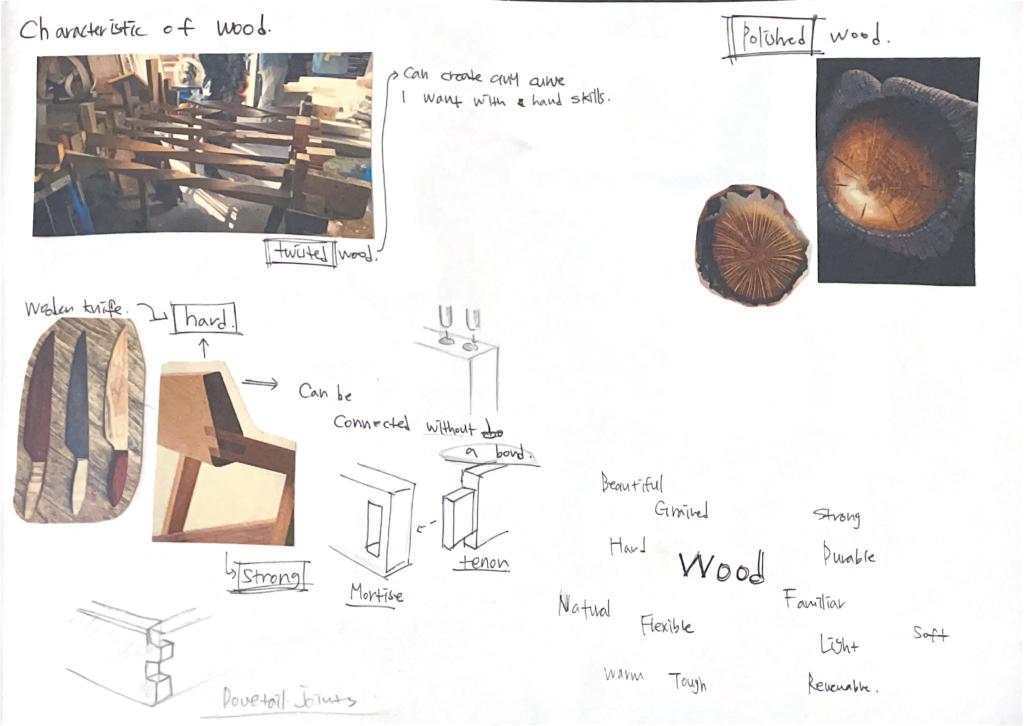 Characteristic of wood.
Polished wood.
Can create any curve
I want with hand skills.
twisted wood.
Wooden knife.
hard.
Can be
Connected without
a bond.
tenon
Mortise
Strong
Dovetail joints
Beautiful
Grained
Strong
Hard
Durable
Wood
Natural
Familiar
Flexible
Soft
Light
Warm
Tough
Renewable.